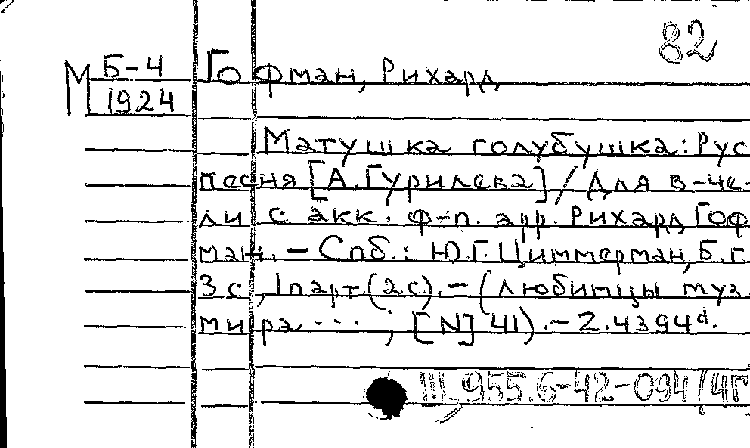 82
М Б-4 Гофман, Рихард
1924
Матушка голубушка: Рус
песня [А. Гурилева] / Для в-че-
ли с акк. ф-п. арр. Рихард Гоф
ман. – Спб.: Ю.Г. Циммерман, Б.г.
3 с, 1 парт (2 с). – (Любимцы муз.
мира ...; [N] 41). – Z. 4394d.
Ш 955.6-42-094/4Г